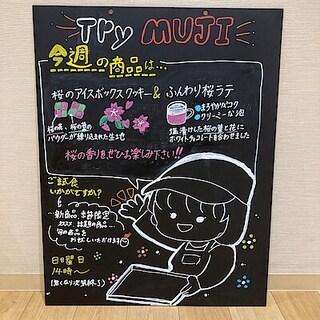 Try MUJI
今週の商品は…
桜のアイスボックスクッキー & ふんわり桜ラテ
まろやかなコク
クリーミーな泡
桜の花、桜の葉の
パウダーが練り込まれた生地
塩漬けした桜の葉と花に
ホワイトチョコレートを合わせました
桜の香りをぜひお楽しみ下さい!!
ご試食
いかがですか?
新商品 季節限定
オススメ 話題の商品…
旬の商品を
お試しいただけます
日曜日
14時〜
(無くなり次第終了)